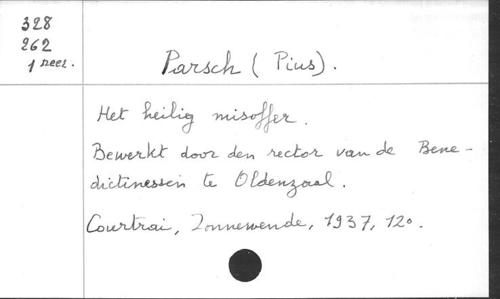 328
262
1 reec.
Parsch (Pius).
Het heilig misoffer.
Bewerkt door den rector van de Bene-
dictinessen te Oldenzaal.
Courtrai, Zonnewende, 1937, 12o.